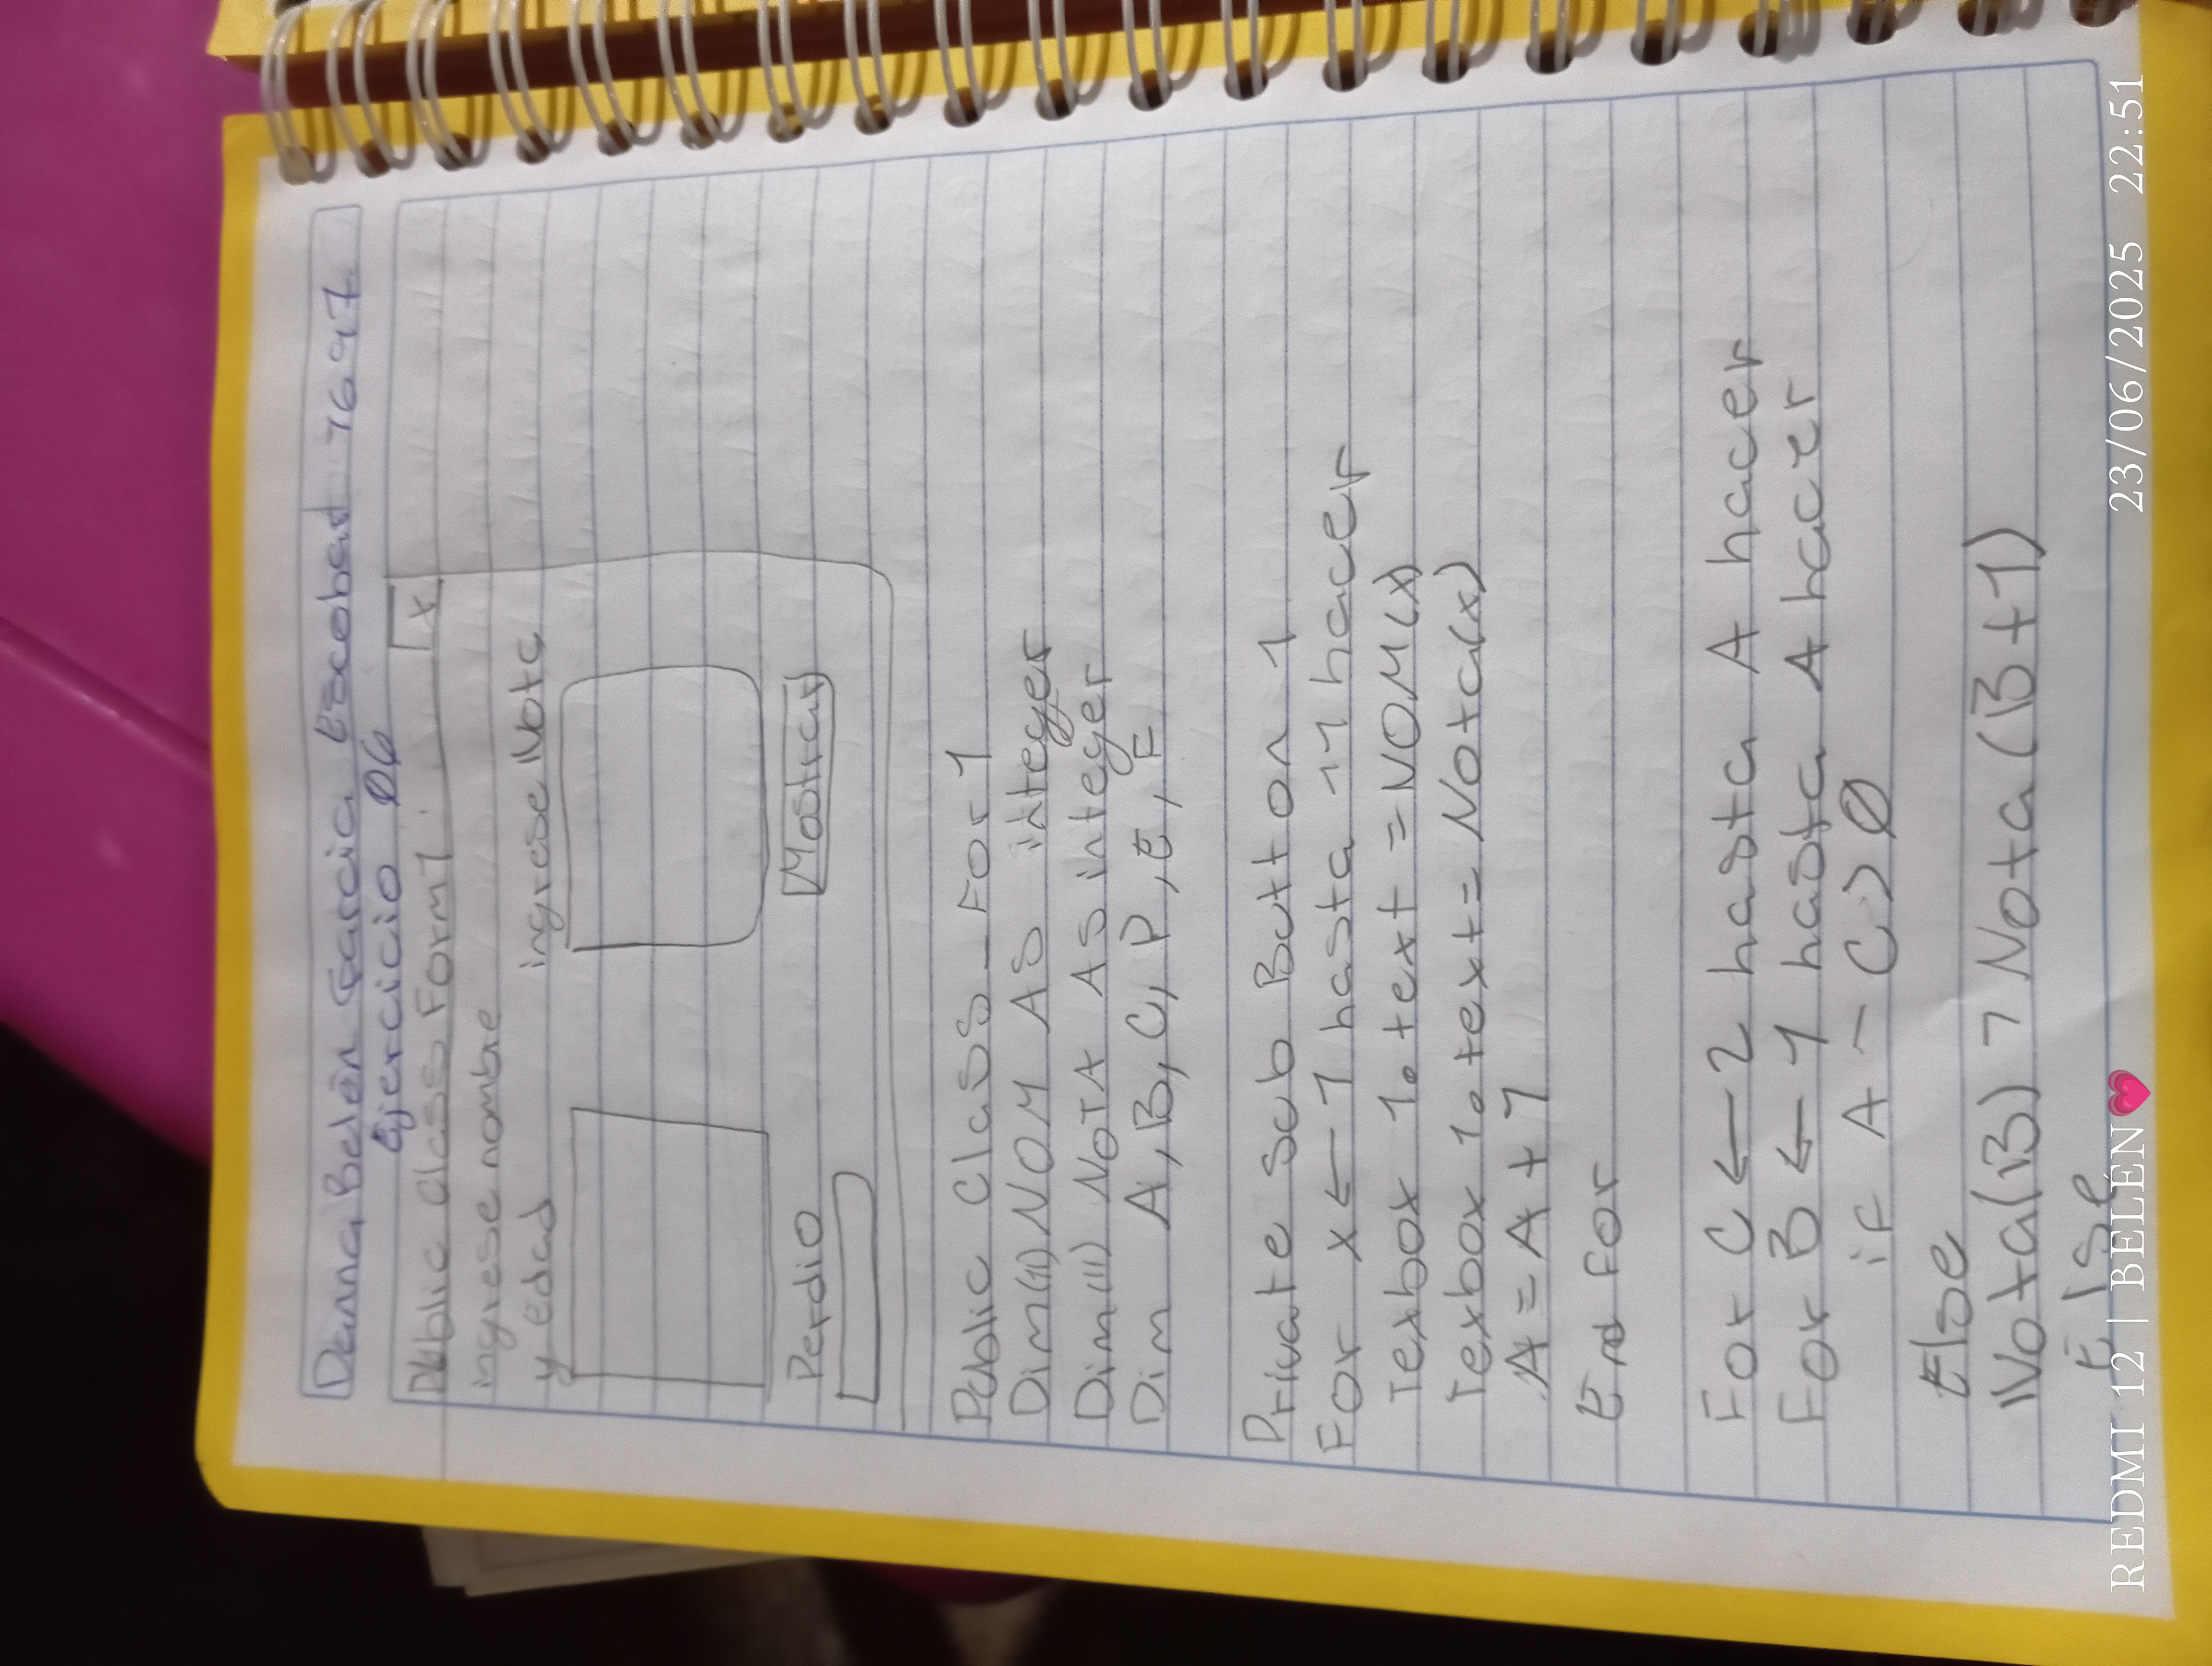 Danna Belén García Escobar 7697
Ejercicio 06
Public Class Form1 x
ingrese nombre
y edad ingrese Nota
Perdio Mostrar
Public Class For1
Dim(11) NOM AS integer
Dim(11) NOTA AS integer
Dim A, B, C, P, E, F
Private Sub Button 1
For x ← 1 hasta 11 hacer
Texbox 1. text = NOM(x)
Texbox 1. text = Nota(x)
A = A + 1
End For
For C ← 2 hasta A hacer
For B ← 1 hasta A hacer
if A - C > 0
Else
Nota(B) 7 Nota (B+1)
Else
REDMI 12 | BELÉN💗 23/06/2025 22:51